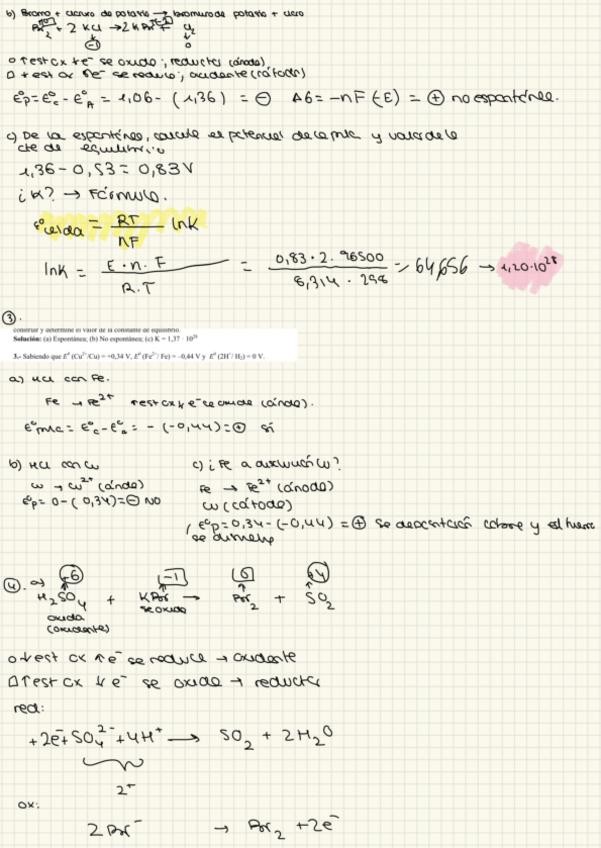 b) Bromo + cloruro de potasio → bromuro de potasio + cloro
Br₂ + 2 KCl → 2 KBr + Cl₂
-1 0
○ ↑est ox ↓e⁻ se oxida; reductor (ánodo)
□ ↓est ox ↑e⁻ se reduce; oxidante (cátodo)
E°p = E°c - E°A = 1,06 - (1,36) = ⊖ ΔG = -nF(-E) = ⊕ no espontánea.
c) De la espontánea, calcule el potencial de la mic y valor de la
cte de equilibrio
1,36 - 0,53 = 0,83 V
¿K? → Fórmula.
E°celda = RT/nF lnK
lnK = E·n·F / R.T = 0,83·2·96500 / 8,314·298 = 64,656 → 1,20·10²⁸
3.
construir y determine el valor de la constante de equilibrio.
Solución: (a) Espontánea; (b) No espontánea; (c) K = 1,37 · 10²⁸
3.- Sabiendo que E⁰ (Cu²⁺/Cu) = +0,34 V, E⁰ (Fe²⁺/ Fe) = -0,44 V y E⁰ (2H⁺/ H₂) = 0 V.
a) HCl con Fe.
Fe → Fe²⁺ ↑est ox ↓e⁻ se oxida (ánodo).
E°mic = E°c - E°a = - (-0,44) = ⊕ sí
b) HCl con Cu
Cu → Cu²⁺ (ánodo)
E°p = 0 - (0,34) = ⊖ NO
c) ¿Fe a disolución Cu?
Fe → Fe²⁺ (ánodo)
Cu (cátodo)
E°p = 0,34 - (-0,44) = ⊕ se depositación cobre y el hierro
se disuelve
4. a) +6 -1 0 +4
H₂SO₄ + KBr → Br₂ + SO₂
oxida se oxida
(oxidante)
○ ↓est ox ↑e⁻ se reduce → oxidante
□ ↑est ox ↓e⁻ se oxida → reductor
red:
+2e⁻ + SO₄²⁻ + 4H⁺ → SO₂ + 2H₂O
2⁺
ox:
2Br⁻ → Br₂ + 2e⁻